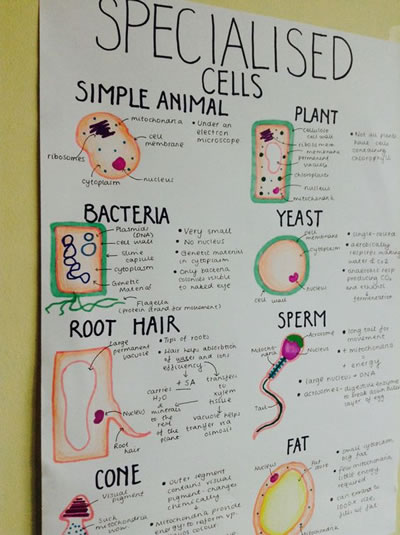 SPECIALISED
CELLS
SIMPLE ANIMAL
mitochondria
cell
membrane
ribosomes
cytoplasm
nucleus
• Under an
electron
microscope
PLANT
cellulose
cell wall
ribosomes
membrane
permanent
vacuole
chloroplasts
nucleus
mitochondria
• Not all plants
have cells
containing
chlorophyll
BACTERIA
Plasmids
(DNA)
cell wall
slime
capsule
cytoplasm
Genetic
Material
Flagella
(protein strand for movement)
• Very small
• No nucleus
• Genetic material
in cytoplasm
• Only bacteria
colonies visible
to naked eye
YEAST
cell
membrane
cytoplasm
nucleus
cell wall
• single-celled
• aerobically
respires making
water & CO2
• anaerobic resp
producing CO2
and ethanol
fermentation
ROOT HAIR
Large
permanent
vacuole
Nucleus
Root
hair
• Tips of roots
• Hair helps absorbtion
of water and ions
efficiency
+ SA
carries
H2O
&
minerals
to the
rest
of the
plant
transfers
to
xylem
tissue
vacuole helps
the transfer via
osmosis
SPERM
Acrosome
Nucleus
Mitochondria
Tail
• long tail for
movement
• + mitochondria
+ energy
• large nucleus + DNA
• acrosome = digestive enzyme
to break down outer
layer of egg
CONE
visual
pigment
• Outer segment
contains visual
pigment - changes
chemically
• Mitochondria provide
energy to reform v.p.
FAT
Nucleus
Fat
store
Mitochondria
• small cytoplasm
big fat
• Few mitochondria
little energy
required